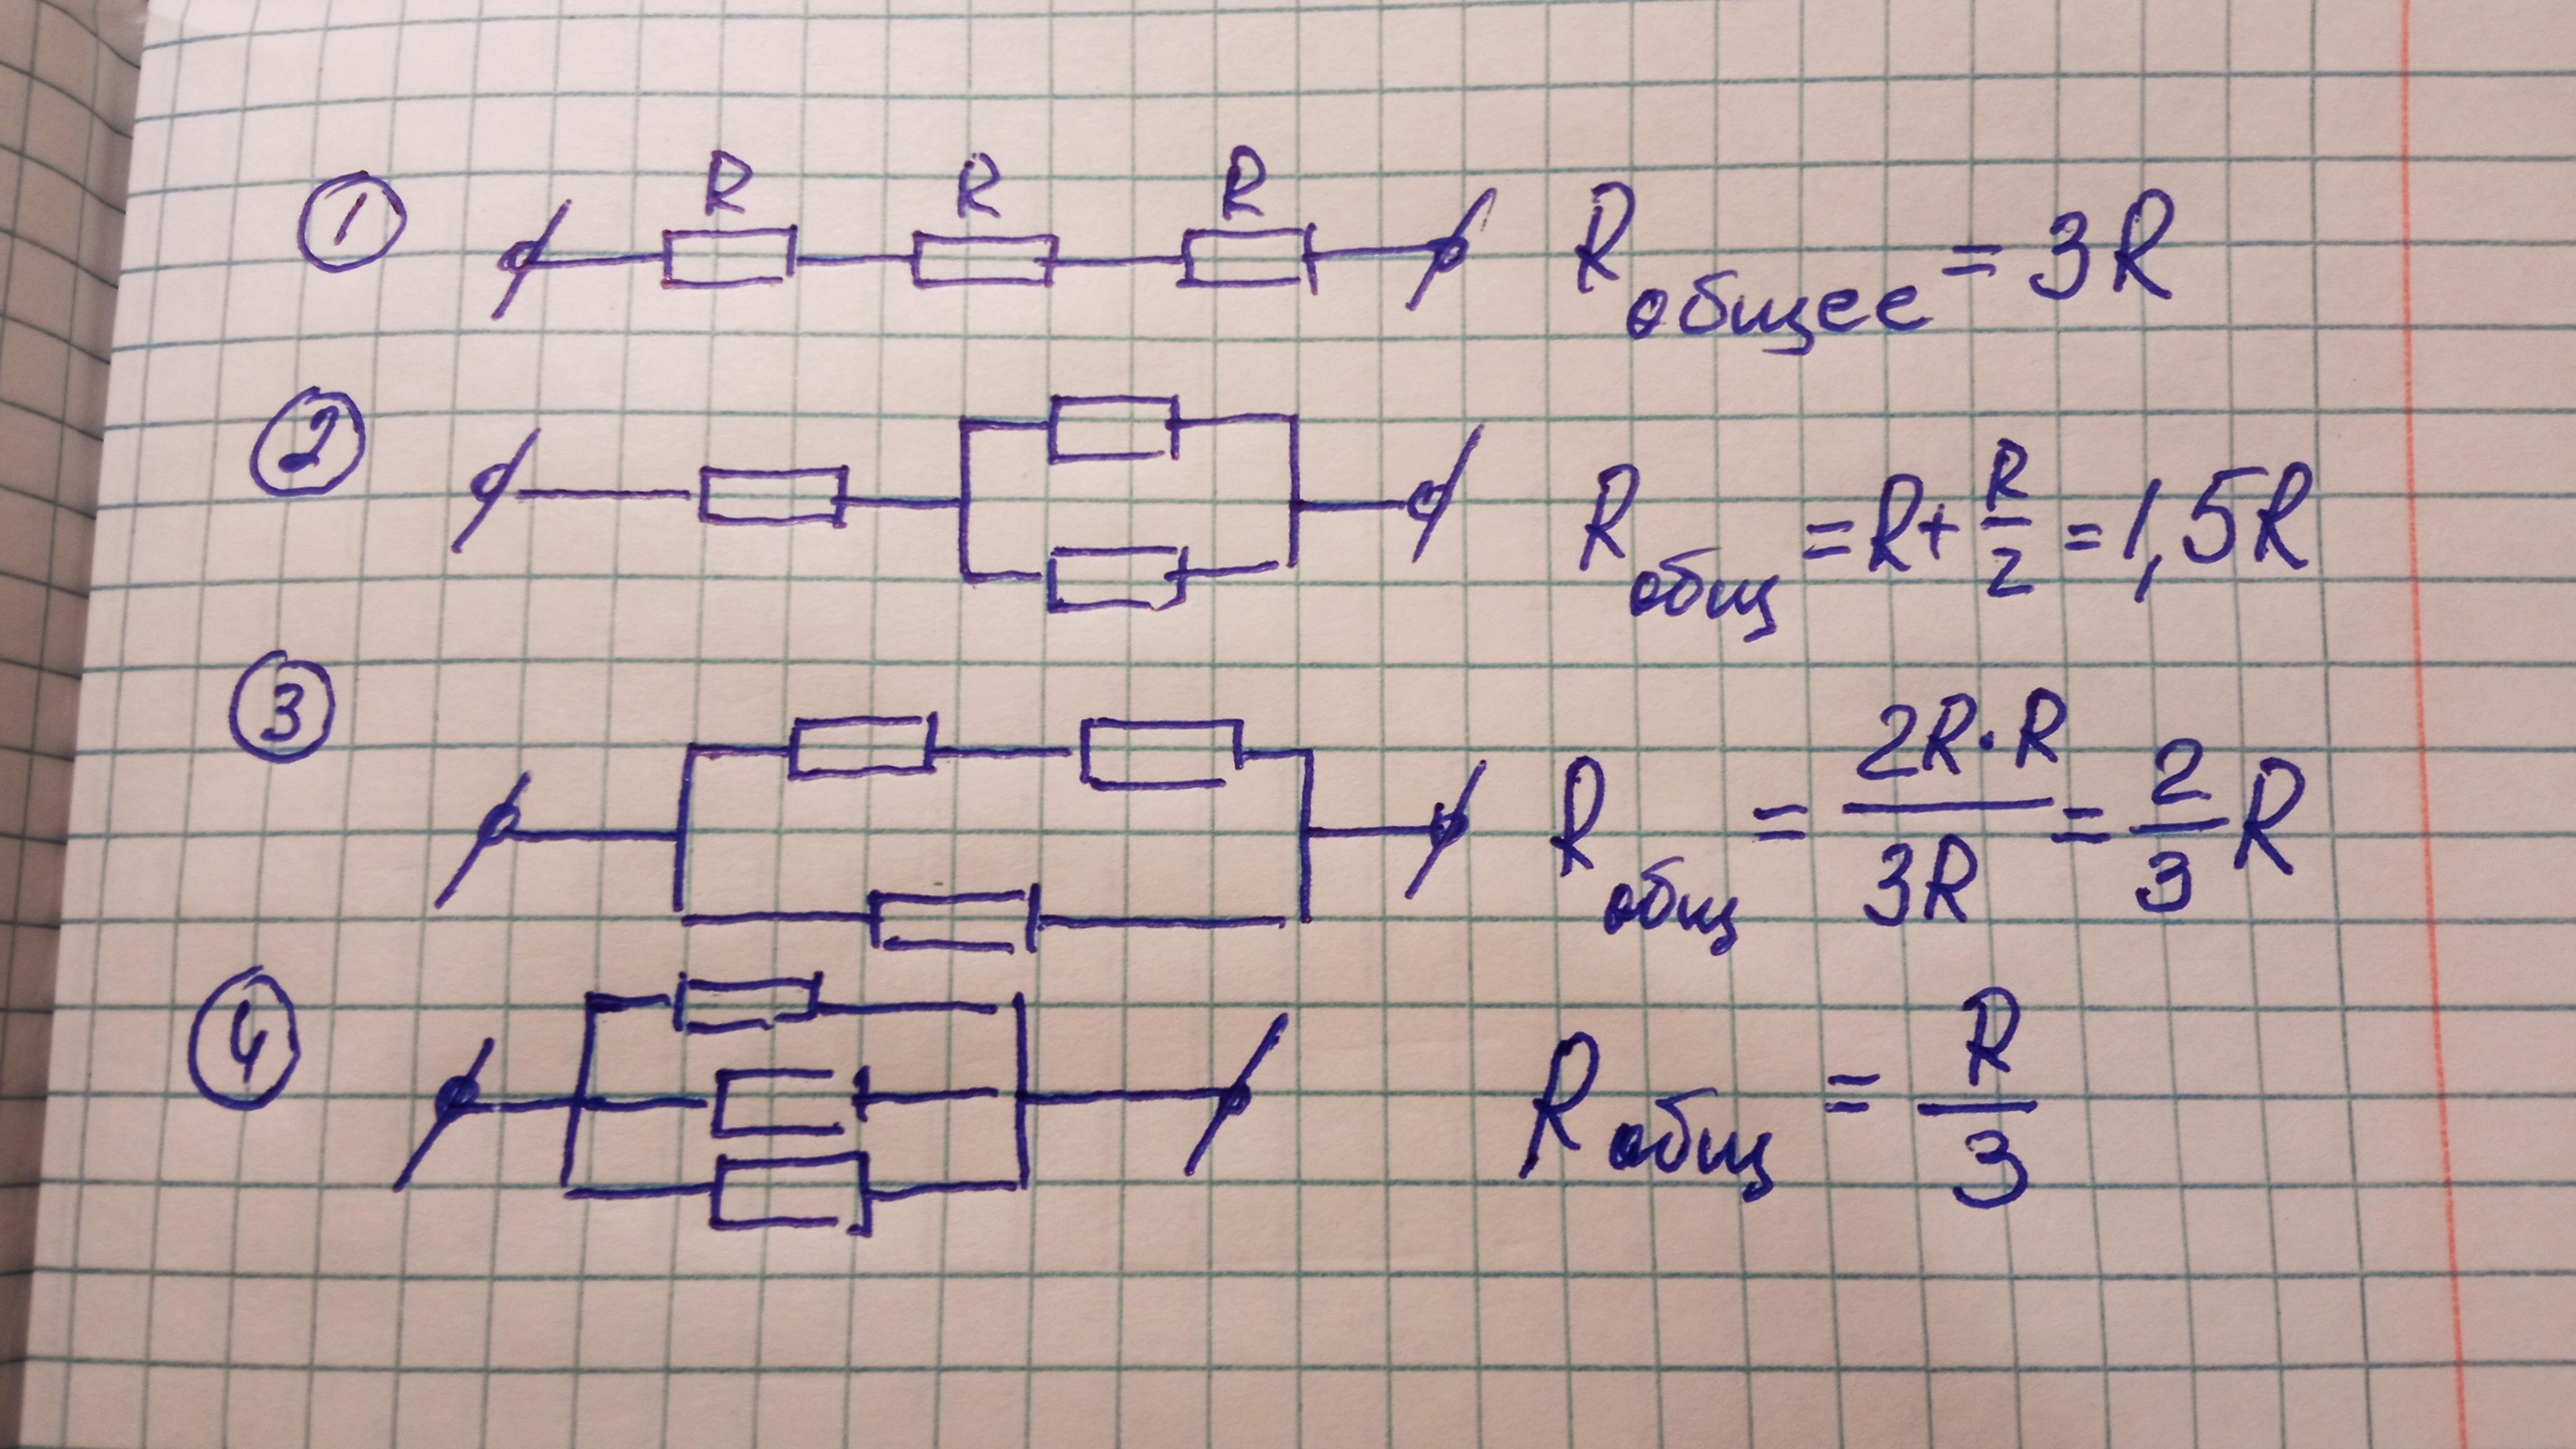 ① R R R R общее = 3R
② R общ = R + R/2 = 1,5R
③ R общ = 2R·R/3R = 2/3 R
④ R общ = R/3